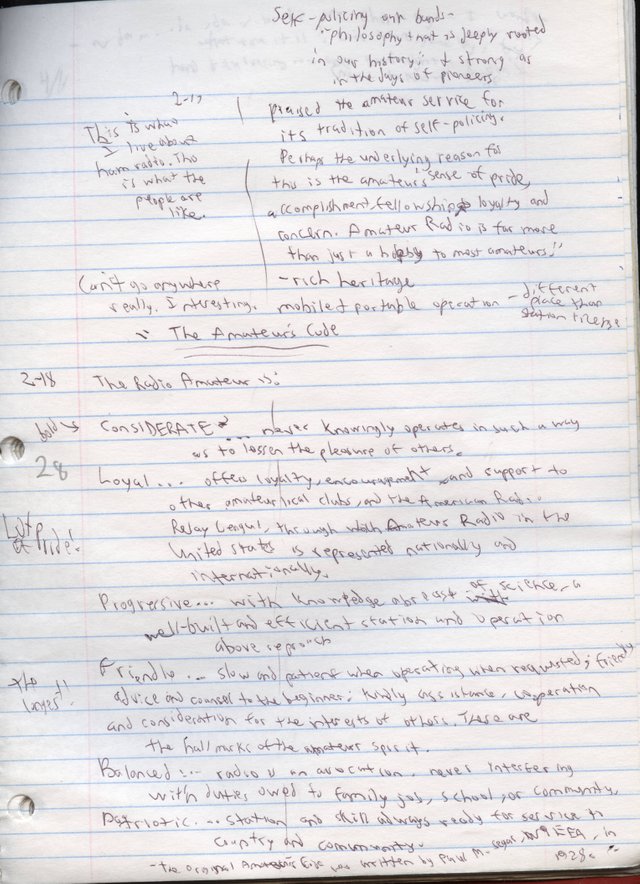 Self-policing our bands-
"philosophy that is deeply rooted
in our history;" & strong as
in the days of pioneers
2-17
praised the amateur service for
its tradition of self-policing.
This is what
I live about
ham radio. This
is what the
people are
like.
Perhaps the underlying reason for
this is the amateur's "sense of pride,
accomplishment, fellowship, loyalty and
concern. Amateur Radio is far more
than just a hobby to most amateurs."
-rich heritage
Can't go anywhere
really. Interesting.
mobile & portable operation - different
place than
station license
The Amateur's Code
2-18 The Radio Amateur is:
bold → CONSIDERATE ... never knowingly operates in such a way
as to lossen the pleasure of others.
28
Loyal ... offers loyalty, encouragement and support to
other amateurs, local clubs, and the American Radio
Lot
of Pride!
Relay League, through which Amateur Radio in the
United States is represented nationally and
internationally.
Progressive ... with knowledge abreast of science, a
well-built and efficient station and operation
above reproach
Friendly ... slow and patient when operating when requested; friendly
longest!
advice and counsel to the beginner; kindly assistance, cooperation
and consideration for the interests of others. These are
the hallmarks of the amateur spirit.
Balanced ... radio is an avocation, never interfering
with duties owed to family, job, school, or community.
Patriotic ... station and skill always ready for service to
country and community.
- the original Amateur's Code was written by Paul M. Segal, W9EEA, in
1928.